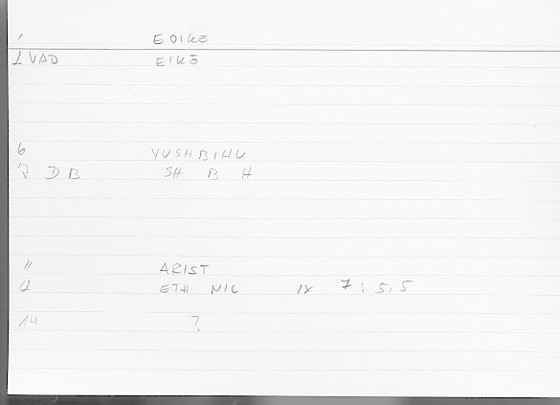 1 EOIKE
2 VAD EIKĒ
6 YUSHBIHU
7 DB SH B H
11 ARIST
12 ETH NIC IX 7; 5,5
14 ?